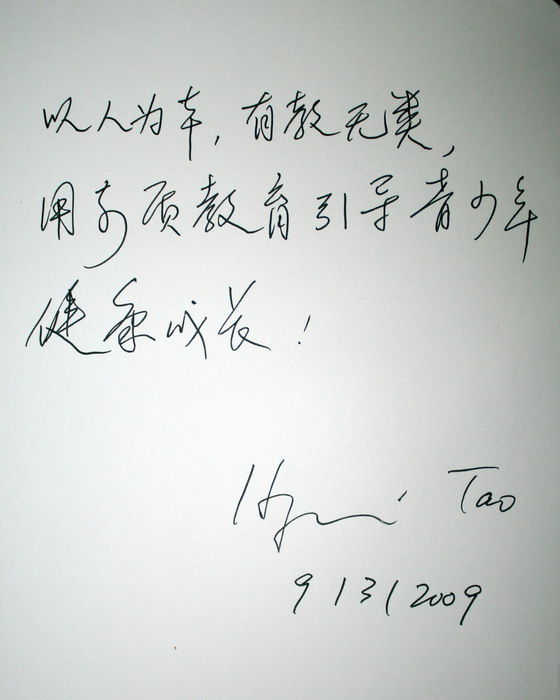 以人为本，有教无类，
用素质教育引导青少年
健康成长！
Tao
9/3/2009